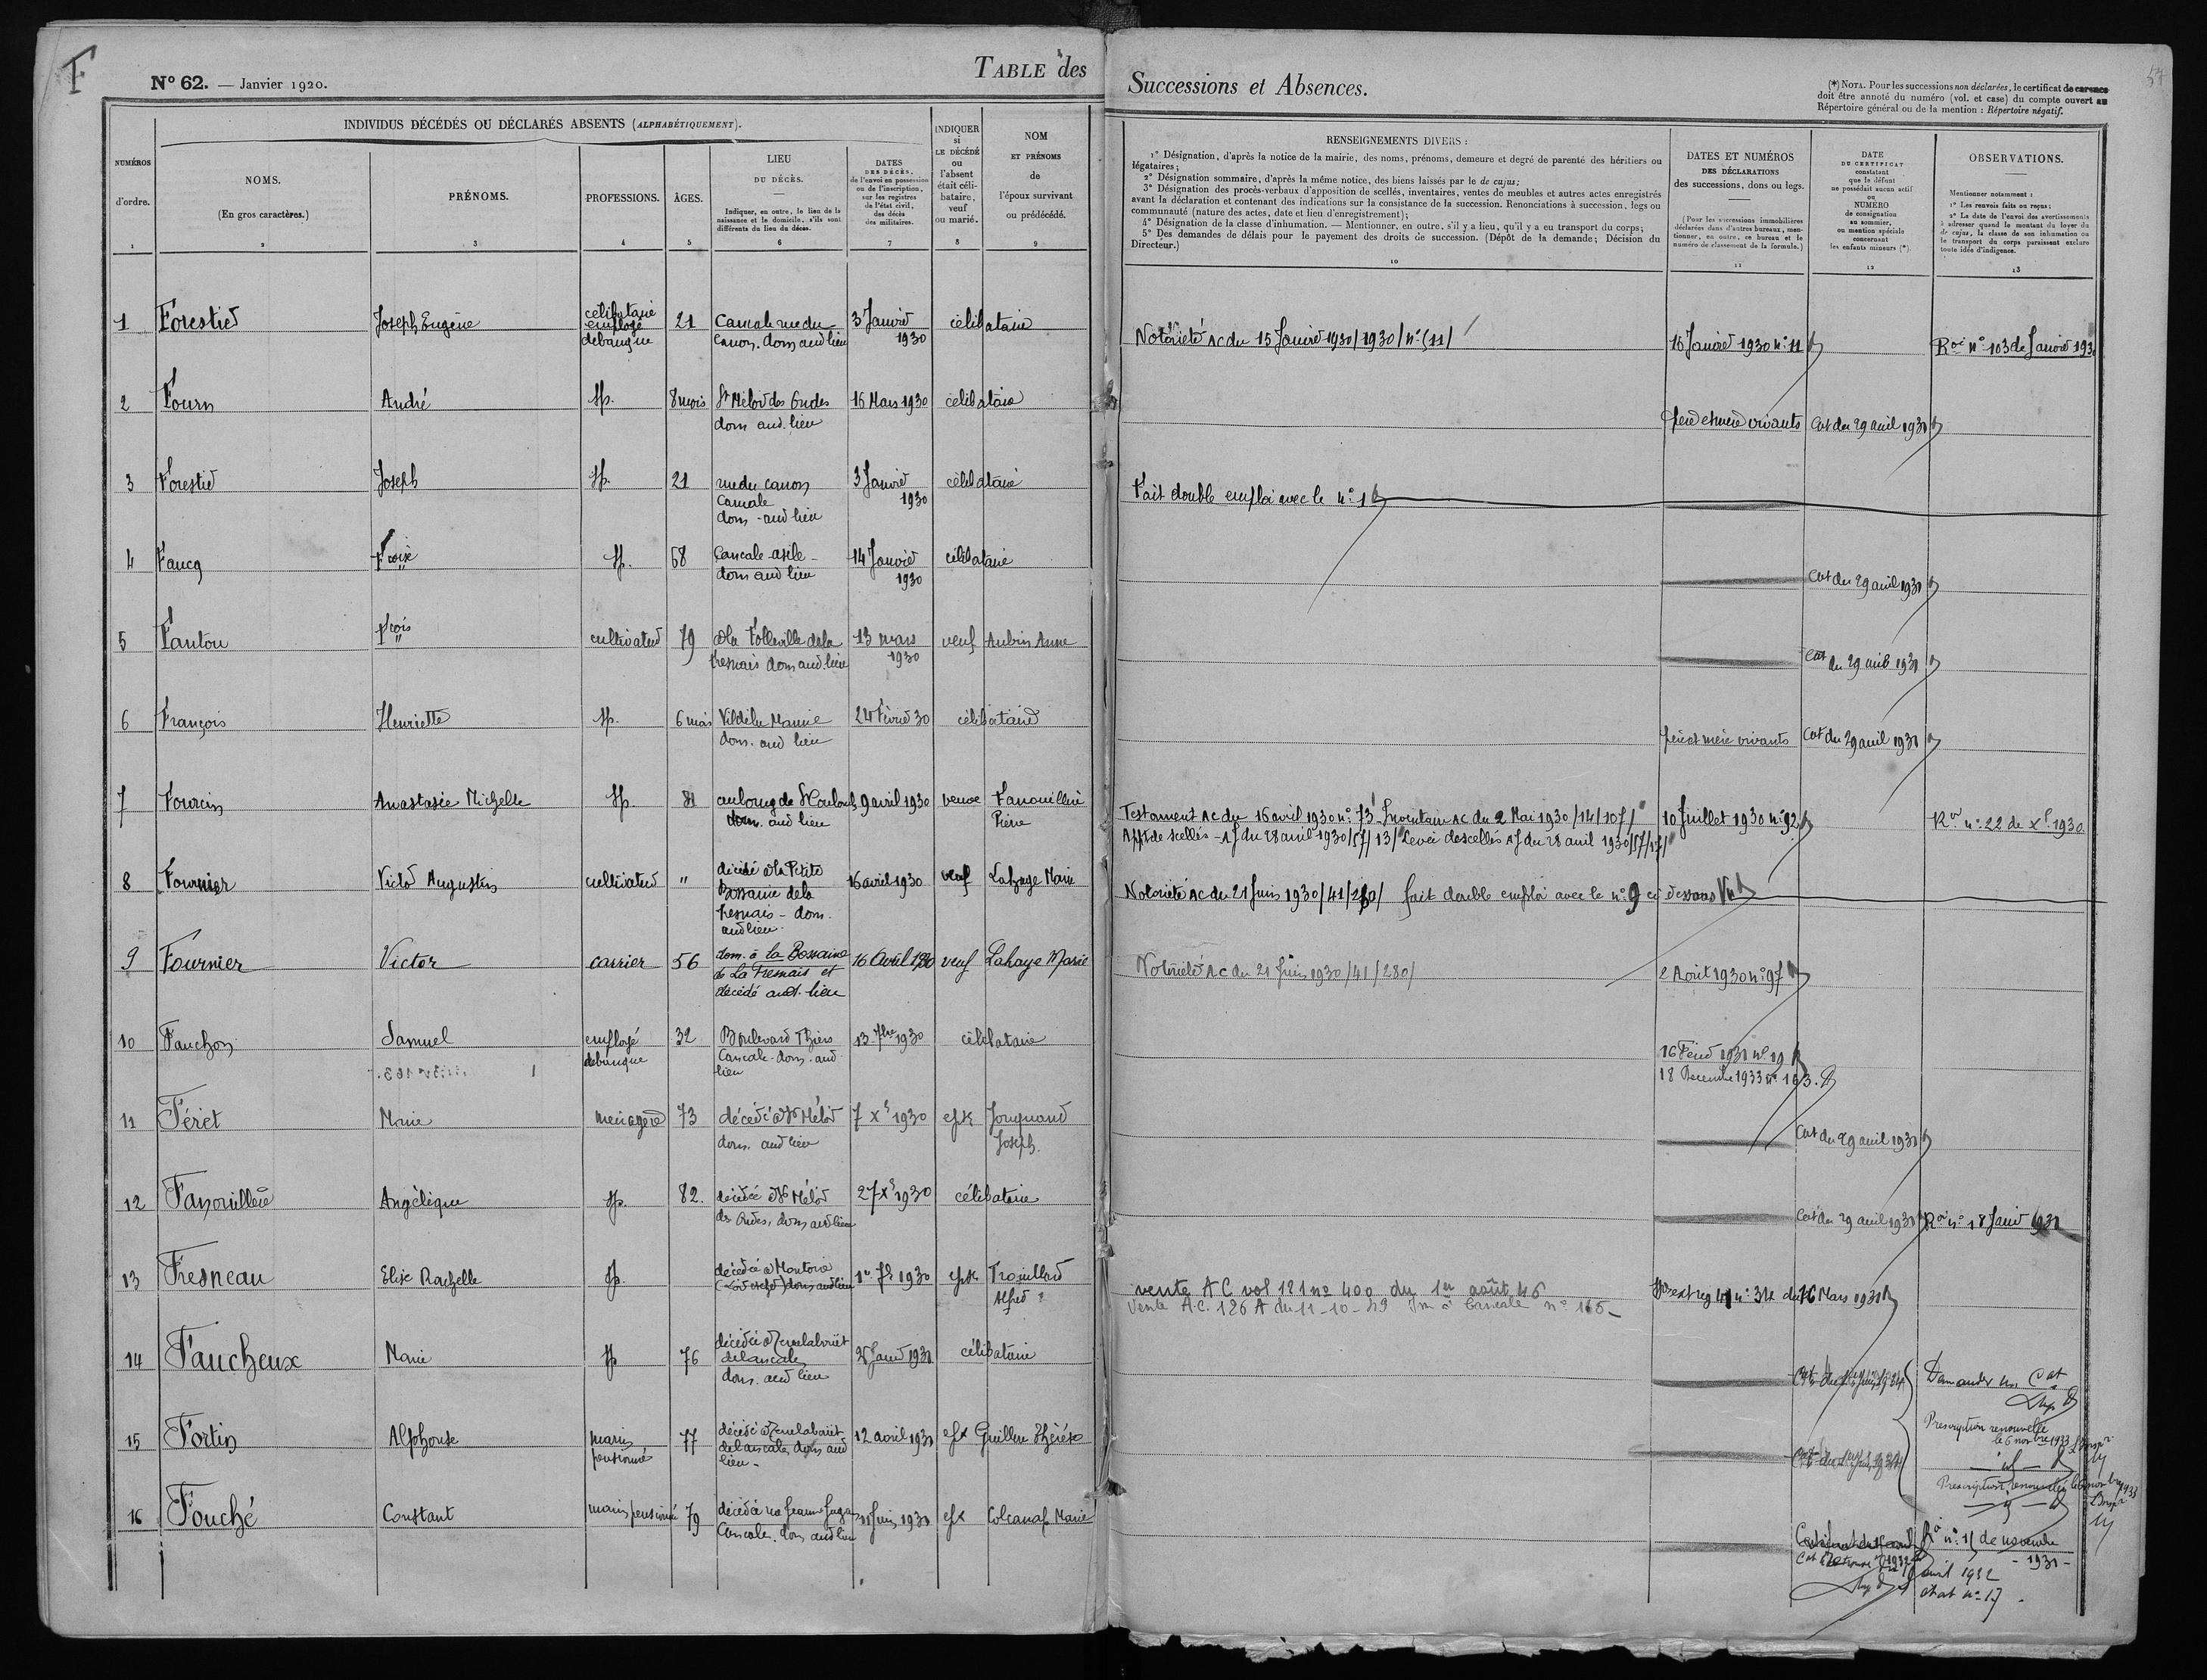 F
57
N° 62. — Janvier 1920.
TABLE des Successions et Absences.
(*) NOTA. Pour les successions non déclarées, le certificat de carence
doit être annoté du numéro (vol. et case) du compte ouvert au
Répertoire général ou de la mention : Répertoire négatif.
NUMÉROS
d'ordre.
1
INDIVIDUS DÉCÉDÉS OU DÉCLARÉS ABSENTS (ALPHABÉTIQUEMENT).
NOMS.
(En gros caractères.)
2
PRÉNOMS.
3
PROFESSIONS.
4
ÂGES.
5
LIEU
DU DÉCÈS.
Indiquer, en outre, le lieu de la
naissance et le domicile, s'ils sont
différents du lieu du décès.
6
DATES
DES DÉCÈS,
de l'envoi en possession
ou de l'inscription,
sur les registres
de l'état civil,
des décès
des militaires.
7
INDIQUER
si
LE DÉCÉDÉ
ou
l'absent
était céli-
bataire,
veuf
ou marié.
8
NOM
ET PRÉNOMS
de
l'époux survivant
ou prédécédé.
9
RENSEIGNEMENTS DIVERS :
1° Désignation, d'après la notice de la mairie, des noms, prénoms, demeure et degré de parenté des héritiers ou
légataires;
2° Désignation sommaire, d'après la même notice, des biens laissés par le de cujus;
3° Désignation des procès-verbaux d'apposition de scellés, inventaires, ventes de meubles et autres actes enregistrés
avant la déclaration et contenant des indications sur la consistance de la succession. Renonciations à succession, legs ou
communauté (nature des actes, date et lieu d'enregistrement);
4° Désignation de la classe d'inhumation. — Mentionner, en outre, s'il y a lieu, qu'il y a eu transport du corps;
5° Des demandes de délais pour le payement des droits de succession. (Dépôt de la demande; Décision du
Directeur.)
10
DATES ET NUMÉROS
DES DÉCLARATIONS
des successions, dons ou legs.
(Pour les successions immobilières
déclarées dans d'autres bureaux, men-
tionner, en outre, ce bureau et le
numéro de classement de la formule.)
11
DATE
DU CERTIFICAT
constatant
que le défunt
ne possédait aucun actif
ou
NUMÉRO
de consignation
au sommier,
ou mention spéciale
concernant
les enfants mineurs (*).
12
OBSERVATIONS.
Mentionner notamment :
1° Les renvois faits ou reçus;
2° La date de l'envoi des avertissements
à adresser quand le montant du loyer du
de cujus, la classe de son inhumation ou
le transport du corps paraissent exclure
toute idée d'indigence.
13
1 Forestier Joseph Eugène célibataire employé de banque 21 Cancale rue du canon. dom aud lieu 3 Janvier 1930 célibataire
Notoriété AC du 15 Janvier 1930/1930/n°(11/ 16 Janvier 1930 n° 11 Roi n° 103 de Janvier 1930
2 Fourn André sp. 8 mois St Méloir des Ondes dom aud. lieu 16 Mars 1930 célibataire
père et mère vivants Cat du 29 avril 1931
3 Forestier Joseph sp. 21 rue du canon Cancale dom - aud lieu 3 Janvier 1930 célibataire
Fait double emploi avec le n° 1
4 Faucq Fcoise sp. 68 Cancale - asile - dom aud lieu 14 Janvier 1930 célibataire
Cat du 29 avril 1931
5 Fantou Fcois cultivateur 79 à la Folleville de la Fresnais dom aud lieu 13 mars 1930 veuf Aubin Anne
Cat du 29 avril 1931
6 François Henriette sp. 6 mois Vildé la Marine dom. aud lieu 24 Février 30 célibataire
père et mère vivants Cat du 29 avril 1931
7 Fourcin Anastasie Michelle sp. 81 au bourg de St Coulomb dom. aud lieu 9 avril 1930 veuve Fanouillère Pierre
Testament AC du 16 avril 1930 n° 73 Inventaire AC du 2 Mai 1930/14/107/ 10 Juillet 1930 n° 92 Roi n° 22 de Xbre 1930
App. de scellés - AJ du 28 avril 1930/57/13/ Levée de scellés AJ du 28 avril 1930/57/17/
8 Fournier Victor Augustin cultivateur " décédé à la Petite Bossaine de la Fresnais - dom. aud lieu 16 avril 1930 veuf Lahaye Marie
Notoriété AC du 21 Juin 1930/41/280/ fait double emploi avec le n° 9 ci dessous
9 Fournier Victor carrier 56 dom. à la Bossaine de La Fresnais et décédé aud. lieu 16 Avril 1930 veuf Lahaye Marie
Notoriété AC du 21 Juin 1930/41/280/ 2 Août 1930 n° 97
10 Fauchon Samuel employé de banque 32 Boulevard Thiers Cancale - dom. aud lieu 13 7bre 1930 célibataire
16 Févr 1931 n° 19
18 Decembre 1933 n° 163.
11 Féret Marie ménagère 73 décédé à St Méloir dom. aud lieu 7 Xbre 1930 épse Jouquand Joseph.
Cat du 29 avril 1931
12 Fanouillère Angélique sp. 82. décédée à St Méloir des Ondes, dom aud lieu 27 Xbre 1930 célibataire
Cat du 29 avril 1931 Roi n° 18 Janvr 1931
13 Fresneau Elise Rachelle sp. décédée à Montoire (Loir et cher) dom aud lieu 1er 7bre 1930 épse Trouillard Alfred
vente AC vol 121 n° 400 du 1er août 46
Vente A.C. 126 A du 11-10-49 Im à Cancale n° 165 -
n° 34 du 16 Mars 1931
14 Faucheux Marie sp 76 dom. aud lieu Janvr 1931 célibataire
Demander un Cat
15 Fortin Alphonse marin pensionné 77 dom aud lieu - 12 avril 1931 épx Guillou
Prescription renouvelée
le 6 novbre 1933
Prescription renouvelée le 6 novbre 1933
16 Fouché Constant marin pensionné 79 Cancale. dom aud lieu Juin 1931 épx Colcanap Marie
Roi n° 15 de novembre
- 1931 -
avril 1932
état n° 17